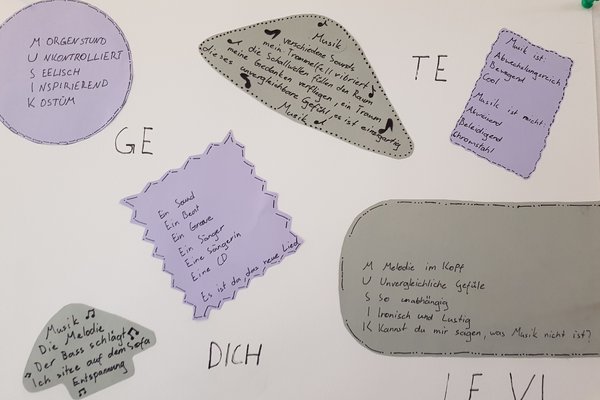 M ORGENSTUND
U NKONTROLLIERT
S EELISCH
I NSPIRIEREND
K OSTÜM
Musik
verschiedene Sounds
mein Trommelfell vibriert,
die Schallwellen füllen den Raum
meine Gedanken verfliegen, ein Traum
dieses unvergleichbare Gefühl, es ist einzigartig
Musik
TE
Musik ist:
Abwechslungsreich
Bewegend
Cool
Musik ist nicht:
Abweisend
Beleidigend
Chromstahl
GE
Ein Sound
Ein Beat
Ein Groove
Ein Sänger
Eine Sängerin
Eine CD
Es ist da, das neue Lied
M Melodie im Kopf
U Unvergleichliche Gefüle
S So unabhängig
I Ironisch und Lustig
K Kannst du mir sagen, was Musik nicht ist?
Musik
Die Melodie
Der Bass schlägt
Ich sitze auf dem Sofa
Entspannung
DICH
LE VI